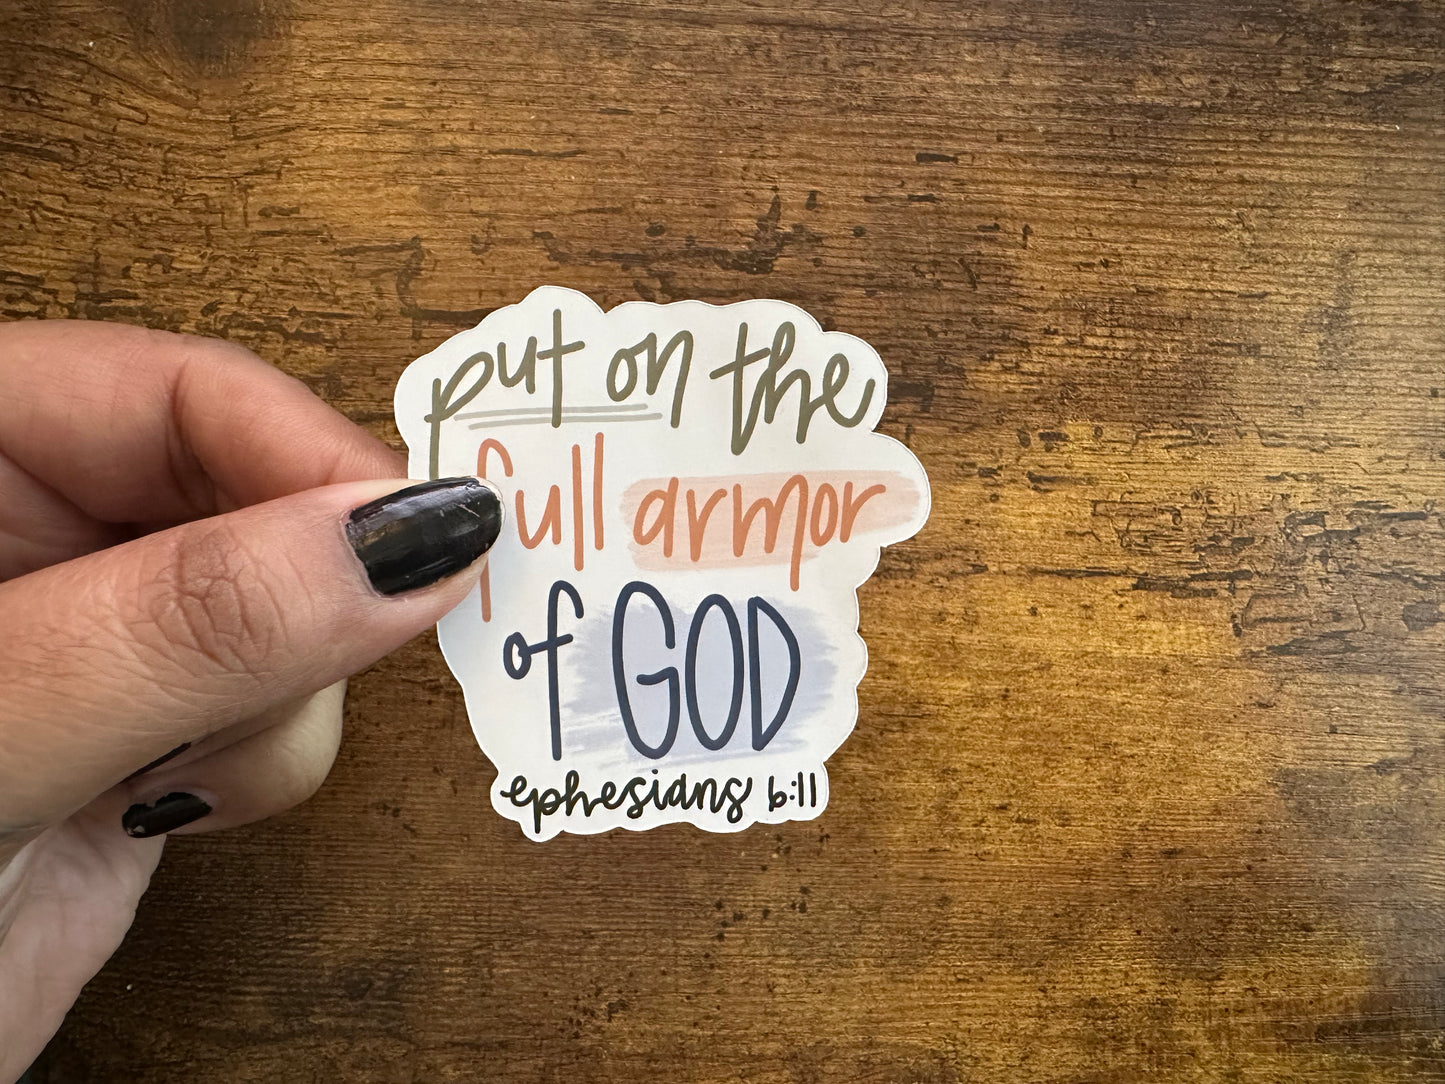 put on the
full armor
of GOD
ephesians 6:11